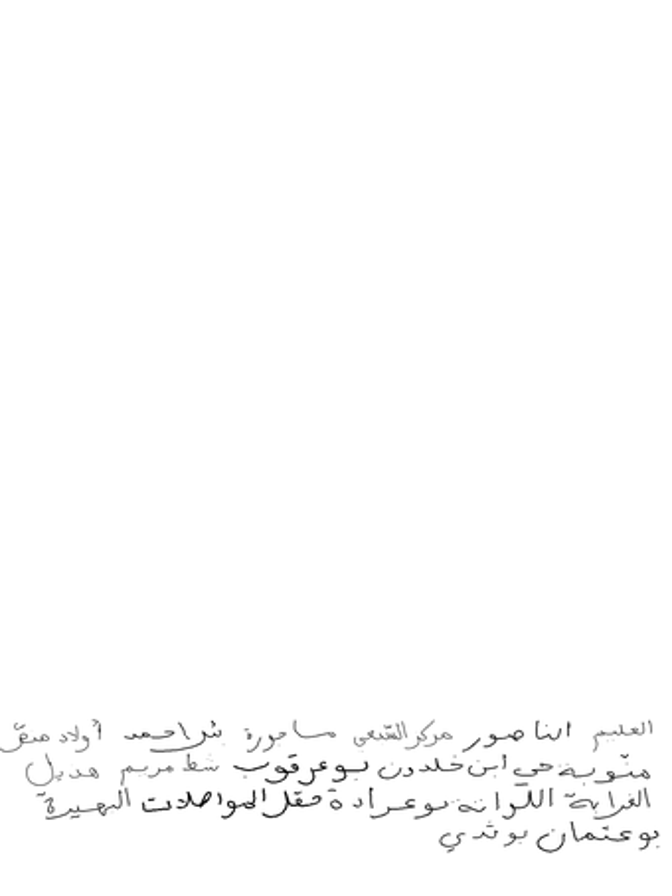 الناصور مركز القبي ساجورة بئر احمد أولاد
منوبة حي ابن خلدون بوعرقوب شط مريم هذيل
الغرابة اللواتة بوعرادة حقل المواصلات البحيرة
بوعثمان بوثدي